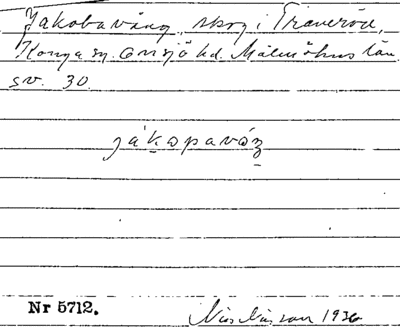 Jakobavång, skog i Träveröd,
Konga sn. Onsjö hd. Malmöhus län
sv. 30.
jákopavóŋ
Nr 5712.
Nils Nilsson 1936